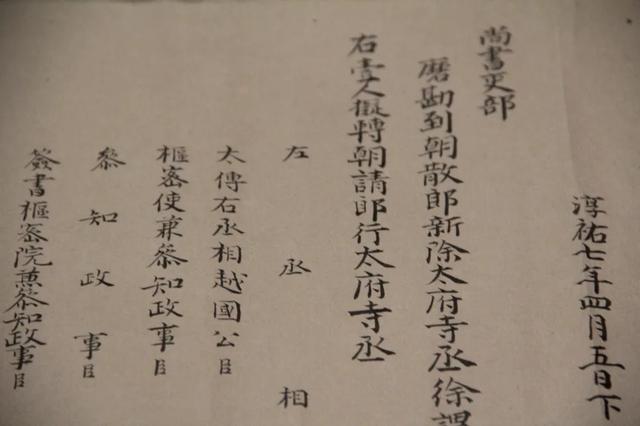 淳祐七年四月五日下
尚書吏部
磨勘到朝散郎新除太府寺丞徐謂
右壹人擬轉朝請郎行太府寺丞
左丞相
太傅右丞相越國公臣
樞密使兼參知政事臣
參知政事臣
簽書樞密院兼參知政事臣